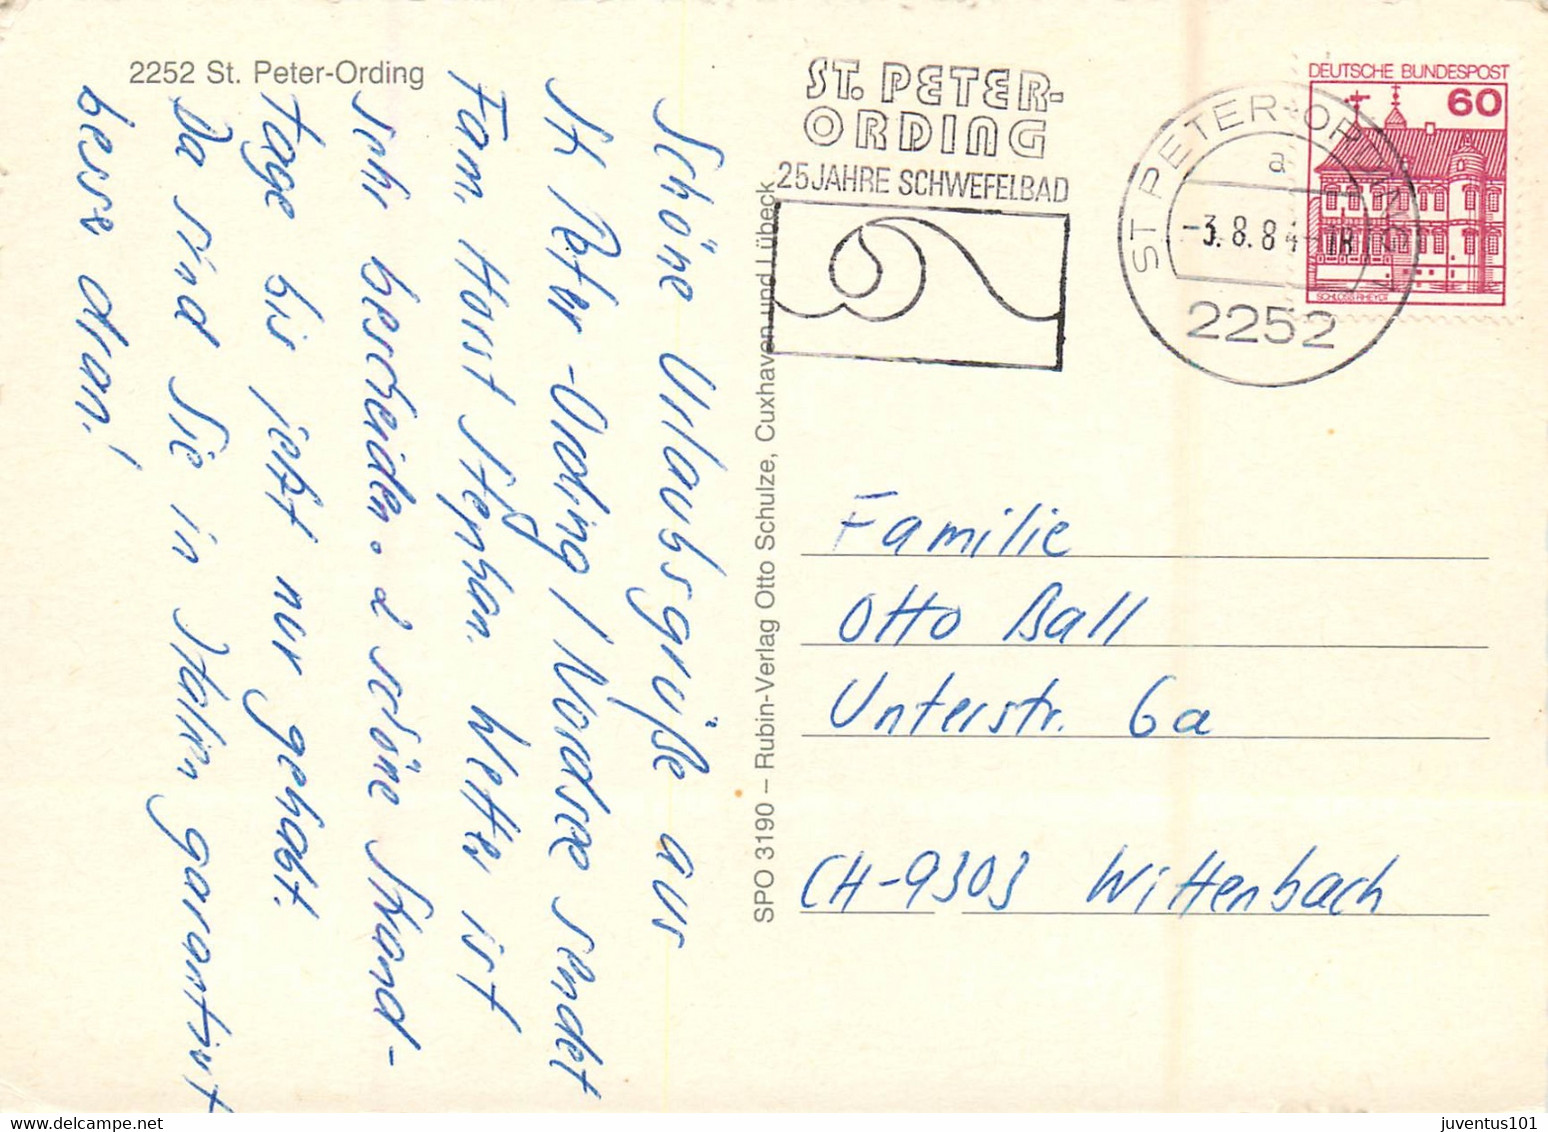 2252 St. Peter-Ording
Schöne Urlaubsgrüße aus
St. Peter-Ording / Nordsee sendet
Fam. Horst Stephan. Wetter ist
sehr bescheiden. 2 schöne Strand-
tage bis jetzt nur gehabt.
Da sind Sie in Italien garantiert
besser dran!
SPO 3190 – Rubin-Verlag Otto Schulze, Cuxhaven und Lübeck
ST. PETER-
ORDING
25 JAHRE SCHWEFELBAD
ST PETER-ORDING
a
-3.8.84-18
2252
DEUTSCHE BUNDESPOST
60
SCHLOSS RHEYDT
Familie
Otto Ball
Unterstr. 6a
CH-9303 Wittenbach
juventus101